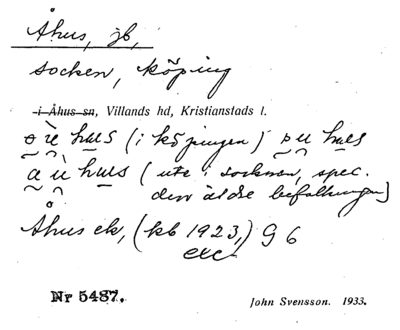 Åhus, jb,
socken, köping
i Åhus sn, Villands hd, Kristianstads l.
hus (i köpingen) hus
hus (ute i socknen, spec.
den äldre befolkningen)
Åhus ek, (kb 1923,) G 6
etc
Nr 5487.
John Svensson. 1933.